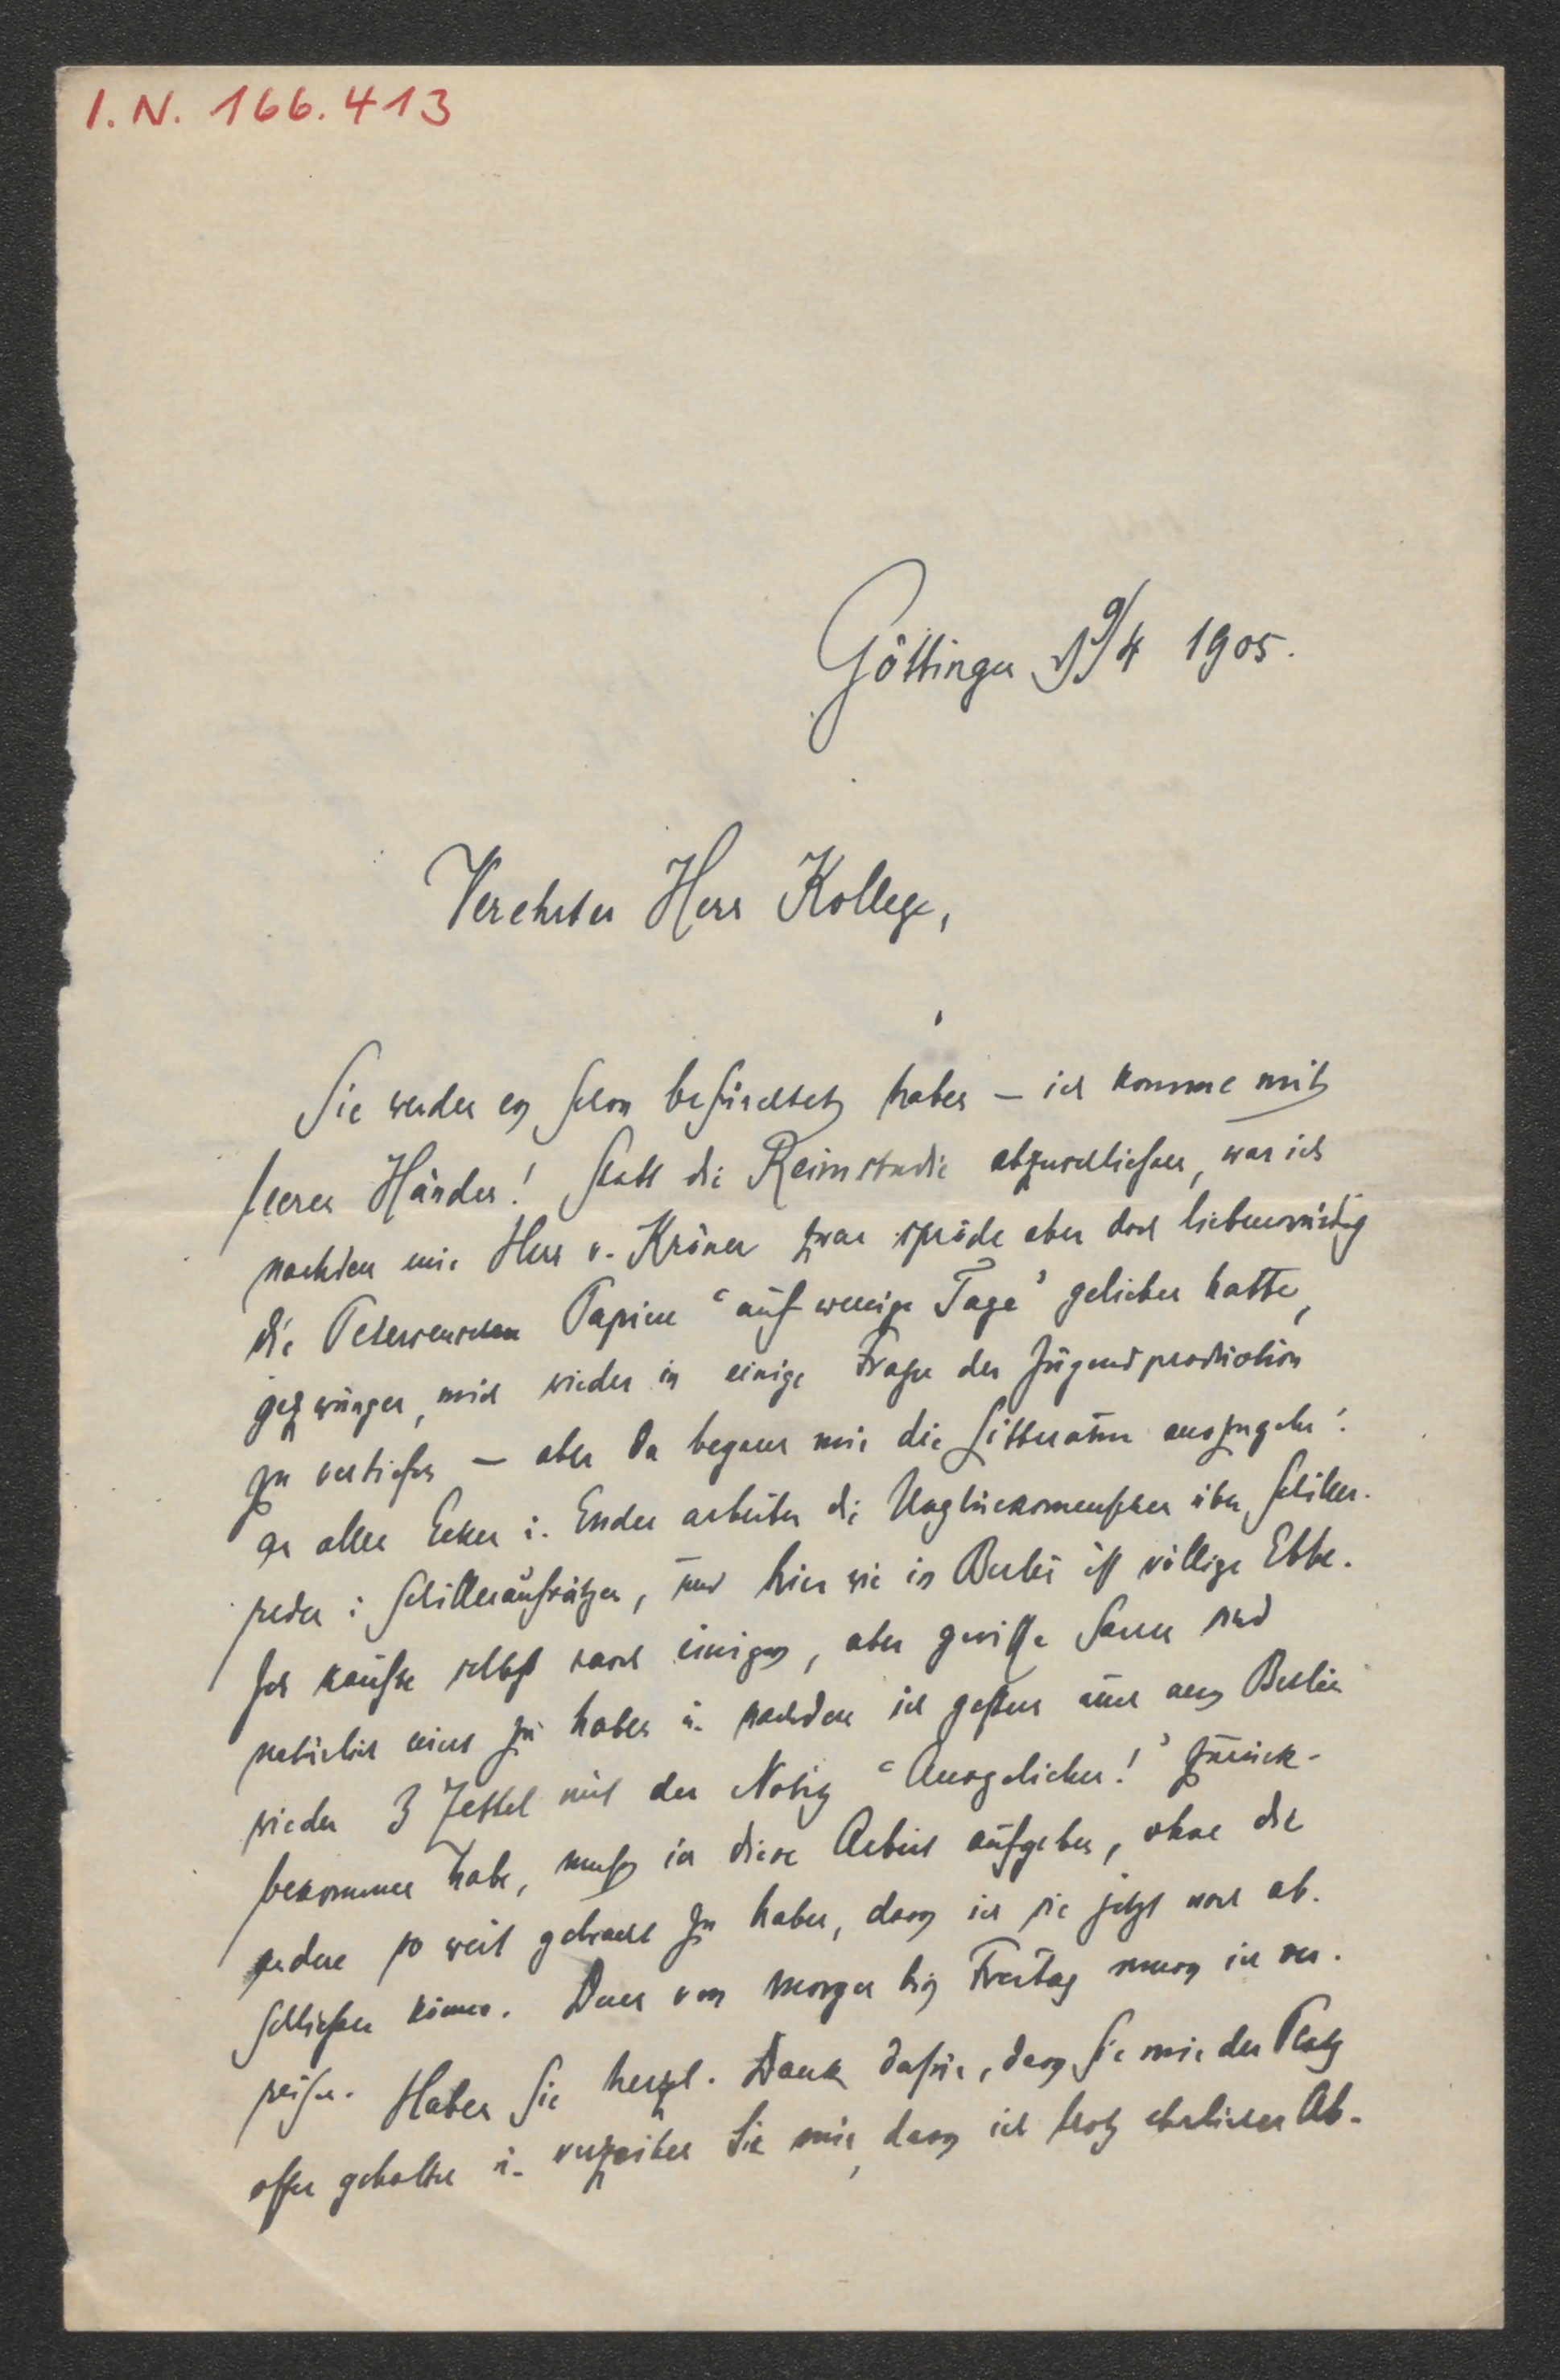 I. N. 166.413
Göttingen 19/4 1905.
Verehrter Herr Kollege,
Sie werden es schon befürchtet haben – ich komme mit
leeren Händen! Statt die Reimstudie abzuschliessen, war ich
nachdem mir Herr v. Kröner zwar spröde aber doch liebenswürdig
die Petersenschen Papiere "auf wenige Tage" geliehen hatte,
gezwungen, mich wieder in einige Fragen der Jugendproduction
zu vertiefen – aber da begann mir die Litteratur auszugehn:
an allen Ecken u. Enden arbeiten die Unglücksmenschen über Schiller-
reden u. Schilleraufsätzen, und hier wie in Berlin ist völlige Ebbe.
Ich kaufte selbst rasch einiges, aber gewisse Sachen sind
natürlich nicht zu haben u. nachdem ich gestern auch aus Berlin
wieder 3 Zettel mit der Notiz "Ausgeliehen!" zurück-
bekommen habe, muss ich diese Arbeit aufgeben, ohne die
andere so weit gebracht zu haben, dass ich sie jetzt noch ab-
schliessen könnte. Denn von morgen bis Freitag muss ich ver-
reisen. Haben Sie herzl. Dank dafür, dass Sie mir den Platz
offen gehalten u. verzeihen Sie mir, dass ich trotz ehrlicher Ab-